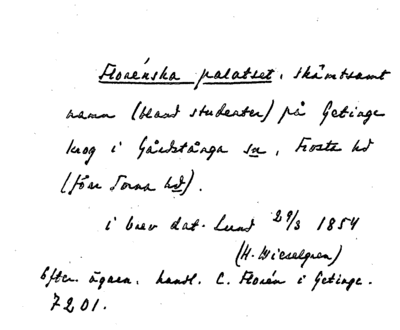 Florénska palatset, skämtsamt
namn (bland studenter) på Getinge
krog i Gårdstånga sn, Frosta hd
(förr Torna hd).
i brev dat. Lund 29/3 1854
(H. Wieselgren)
Efter ägaren, handl. C. Florén i Getinge.
7201.